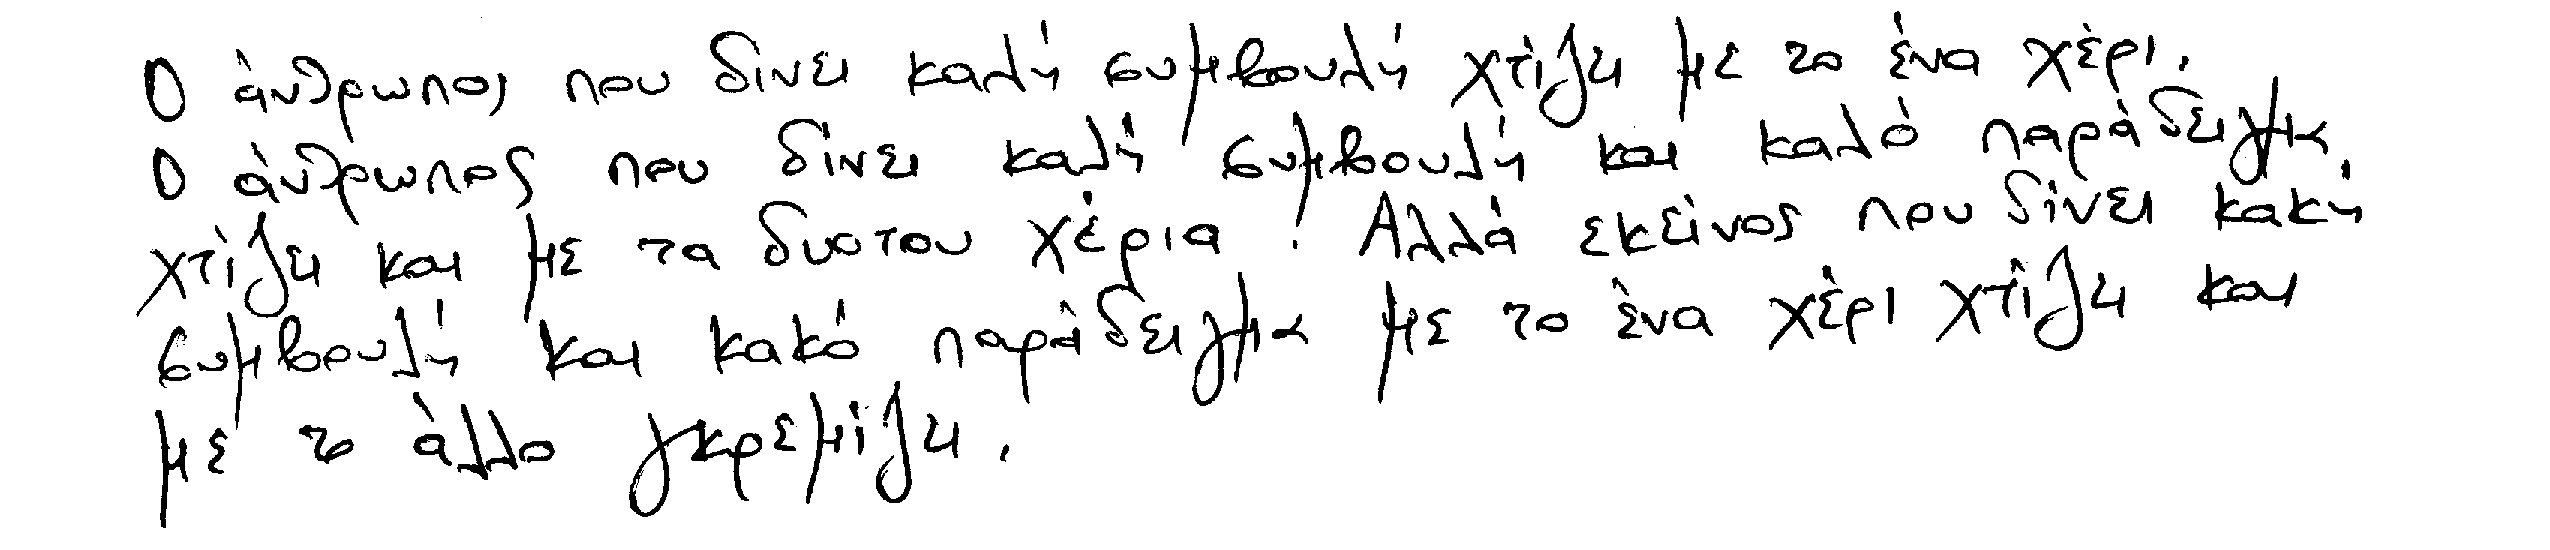 Ο άνθρωπος που δίνει καλή συμβουλή χτίζει με το ένα χέρι.
Ο άνθρωπος που δίνει καλή συμβουλή και καλό παράδειγμα,
χτίζει και με τα δυο του χέρια. Αλλά εκείνος που δίνει κακή
συμβουλή και κακό παράδειγμα με το ένα χέρι χτίζει και
με το άλλο γκρεμίζει.